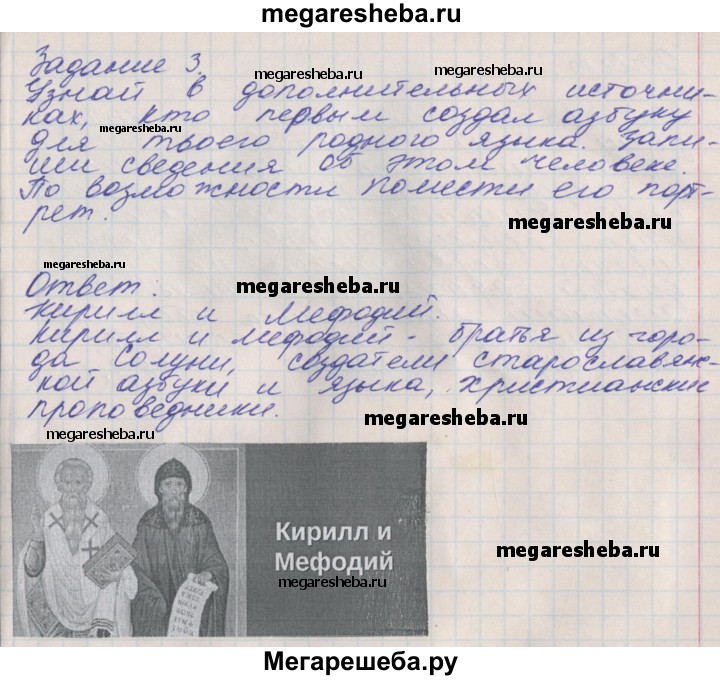 megaresheba.ru
Задание 3.
megaresheba.ru
megaresheba.ru
Узнай в дополнительных источни-
ках, кто первым создал азбуку
megaresheba.ru
для твоего родного языка. Запи-
ши сведения об этом человеке.
По возможности помести его порт-
рет.
megaresheba.ru
megaresheba.ru
Ответ:
megaresheba.ru
Кирилл и Мефодий.
Кирилл и Мефодий - братья из горо-
да Солуни, создатели старославян-
ской азбуки и языка, христианские
проповедники.
megaresheba.ru
megaresheba.ru
Кирилл и
Мефодий
megaresheba.ru
megaresheba.ru
Мегарешеба.ру